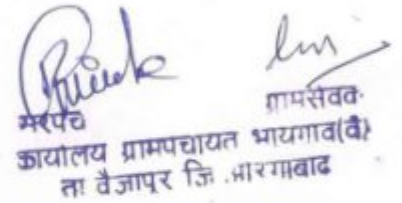 सरपंच ग्रामसेवक
कार्यालय ग्रामपंचायत भायगाव(वै)
ता वैजापूर जि .औरंगाबाद